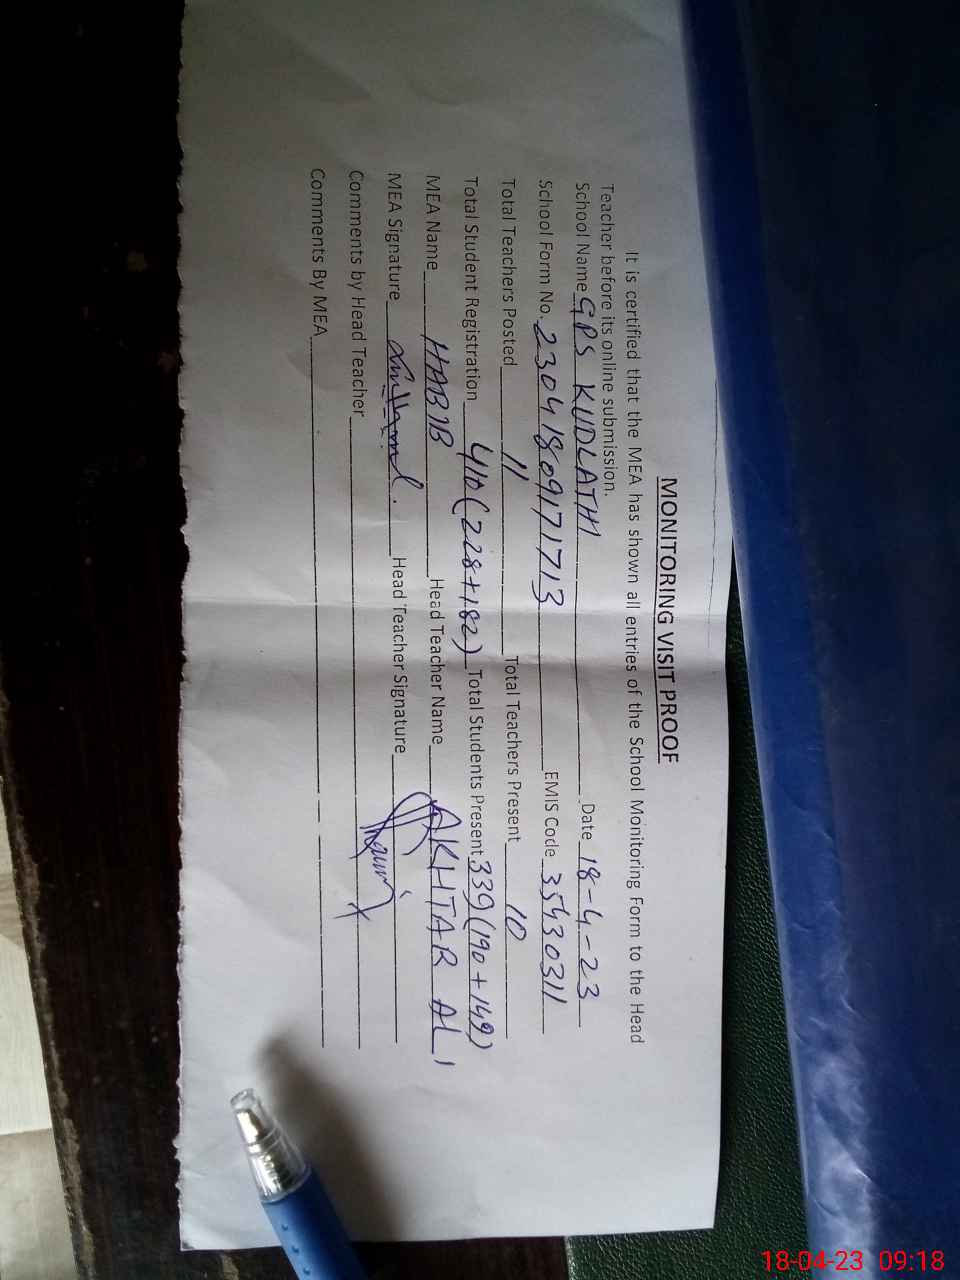 MONITORING VISIT PROOF
It is certified that the MEA has shown all entries of the School Monitoring Form to the Head
Teacher before its online submission.
School Name GPS KUDLATHI Date 18-4-23
School Form No. 230418091 71713 EMIS Code 35430311
Total Teachers Posted 11 Total Teachers Present 10
Total Student Registration 410 (228+182) Total Students Present 339 (190+149)
MEA Name HABIB Head Teacher Name AKHTAR ALI
MEA Signature Head Teacher Signature
Comments by Head Teacher
Comments By MEA
18-04-23 09:18